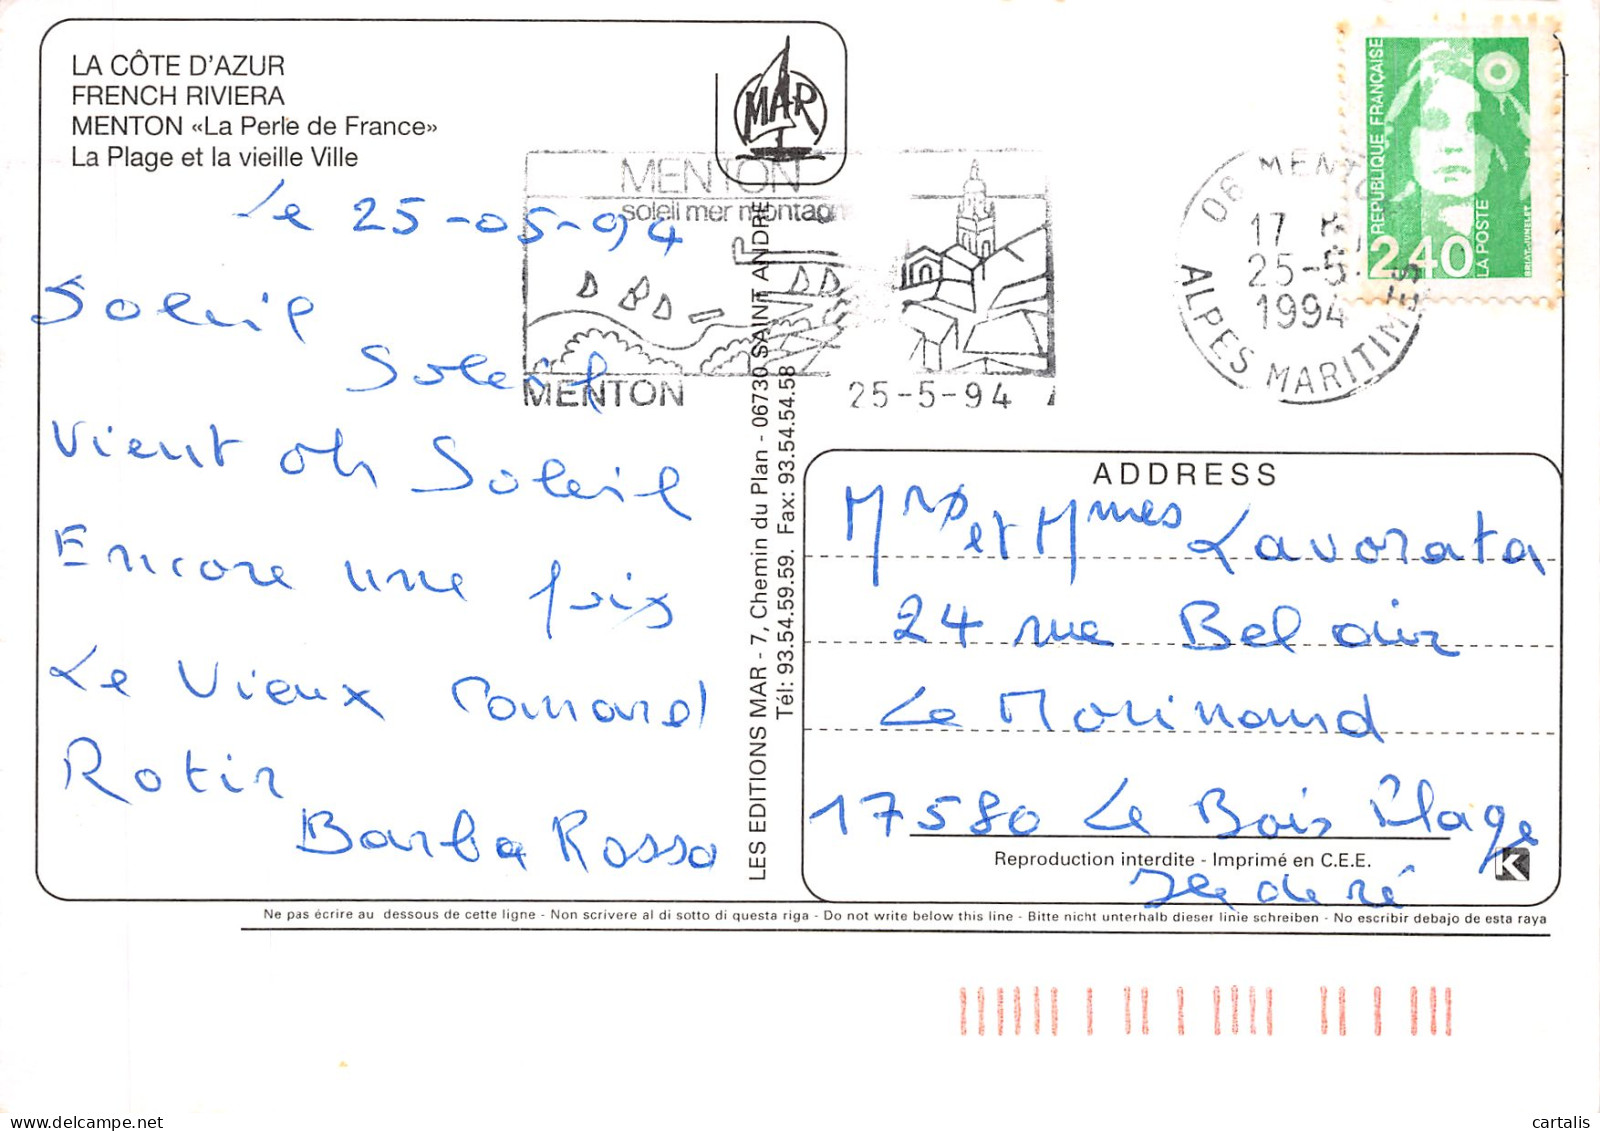 LA CÔTE D'AZUR
FRENCH RIVIERA
MENTON «La Perle de France»
La Plage et la vieille Ville
MAR
MENTON
soleil mer montagn
MENTON
25-5-94
06 MENTO
17 H
25-5
1994
ALPES MARITIMES
REPUBLIQUE FRANÇAISE
LA POSTE
2,40
Le 25-05-94
Soleil
Soleil
Vient oh Soleil
Encore une fois
Le Vieux Camarad
Rotir
Barba Rossa
LES EDITIONS MAR - 7, Chemin du Plan - 06730 SAINT ANDRE
Tél: 93.54.59.59. Fax: 93.54.54.58
ADDRESS
Mrs et Mmes Lavorata
24 rue Bel air
Le Morinand
17580 Le Bois Plage
Reproduction interdite - Imprimé en C.E.E.
K
Ile de ré
Ne pas écrire au dessous de cette ligne - Non scrivere al di sotto di questa riga - Do not write below this line - Bitte nicht unterhalb dieser linie schreiben - No escribir debajo de esta raya
cartalis